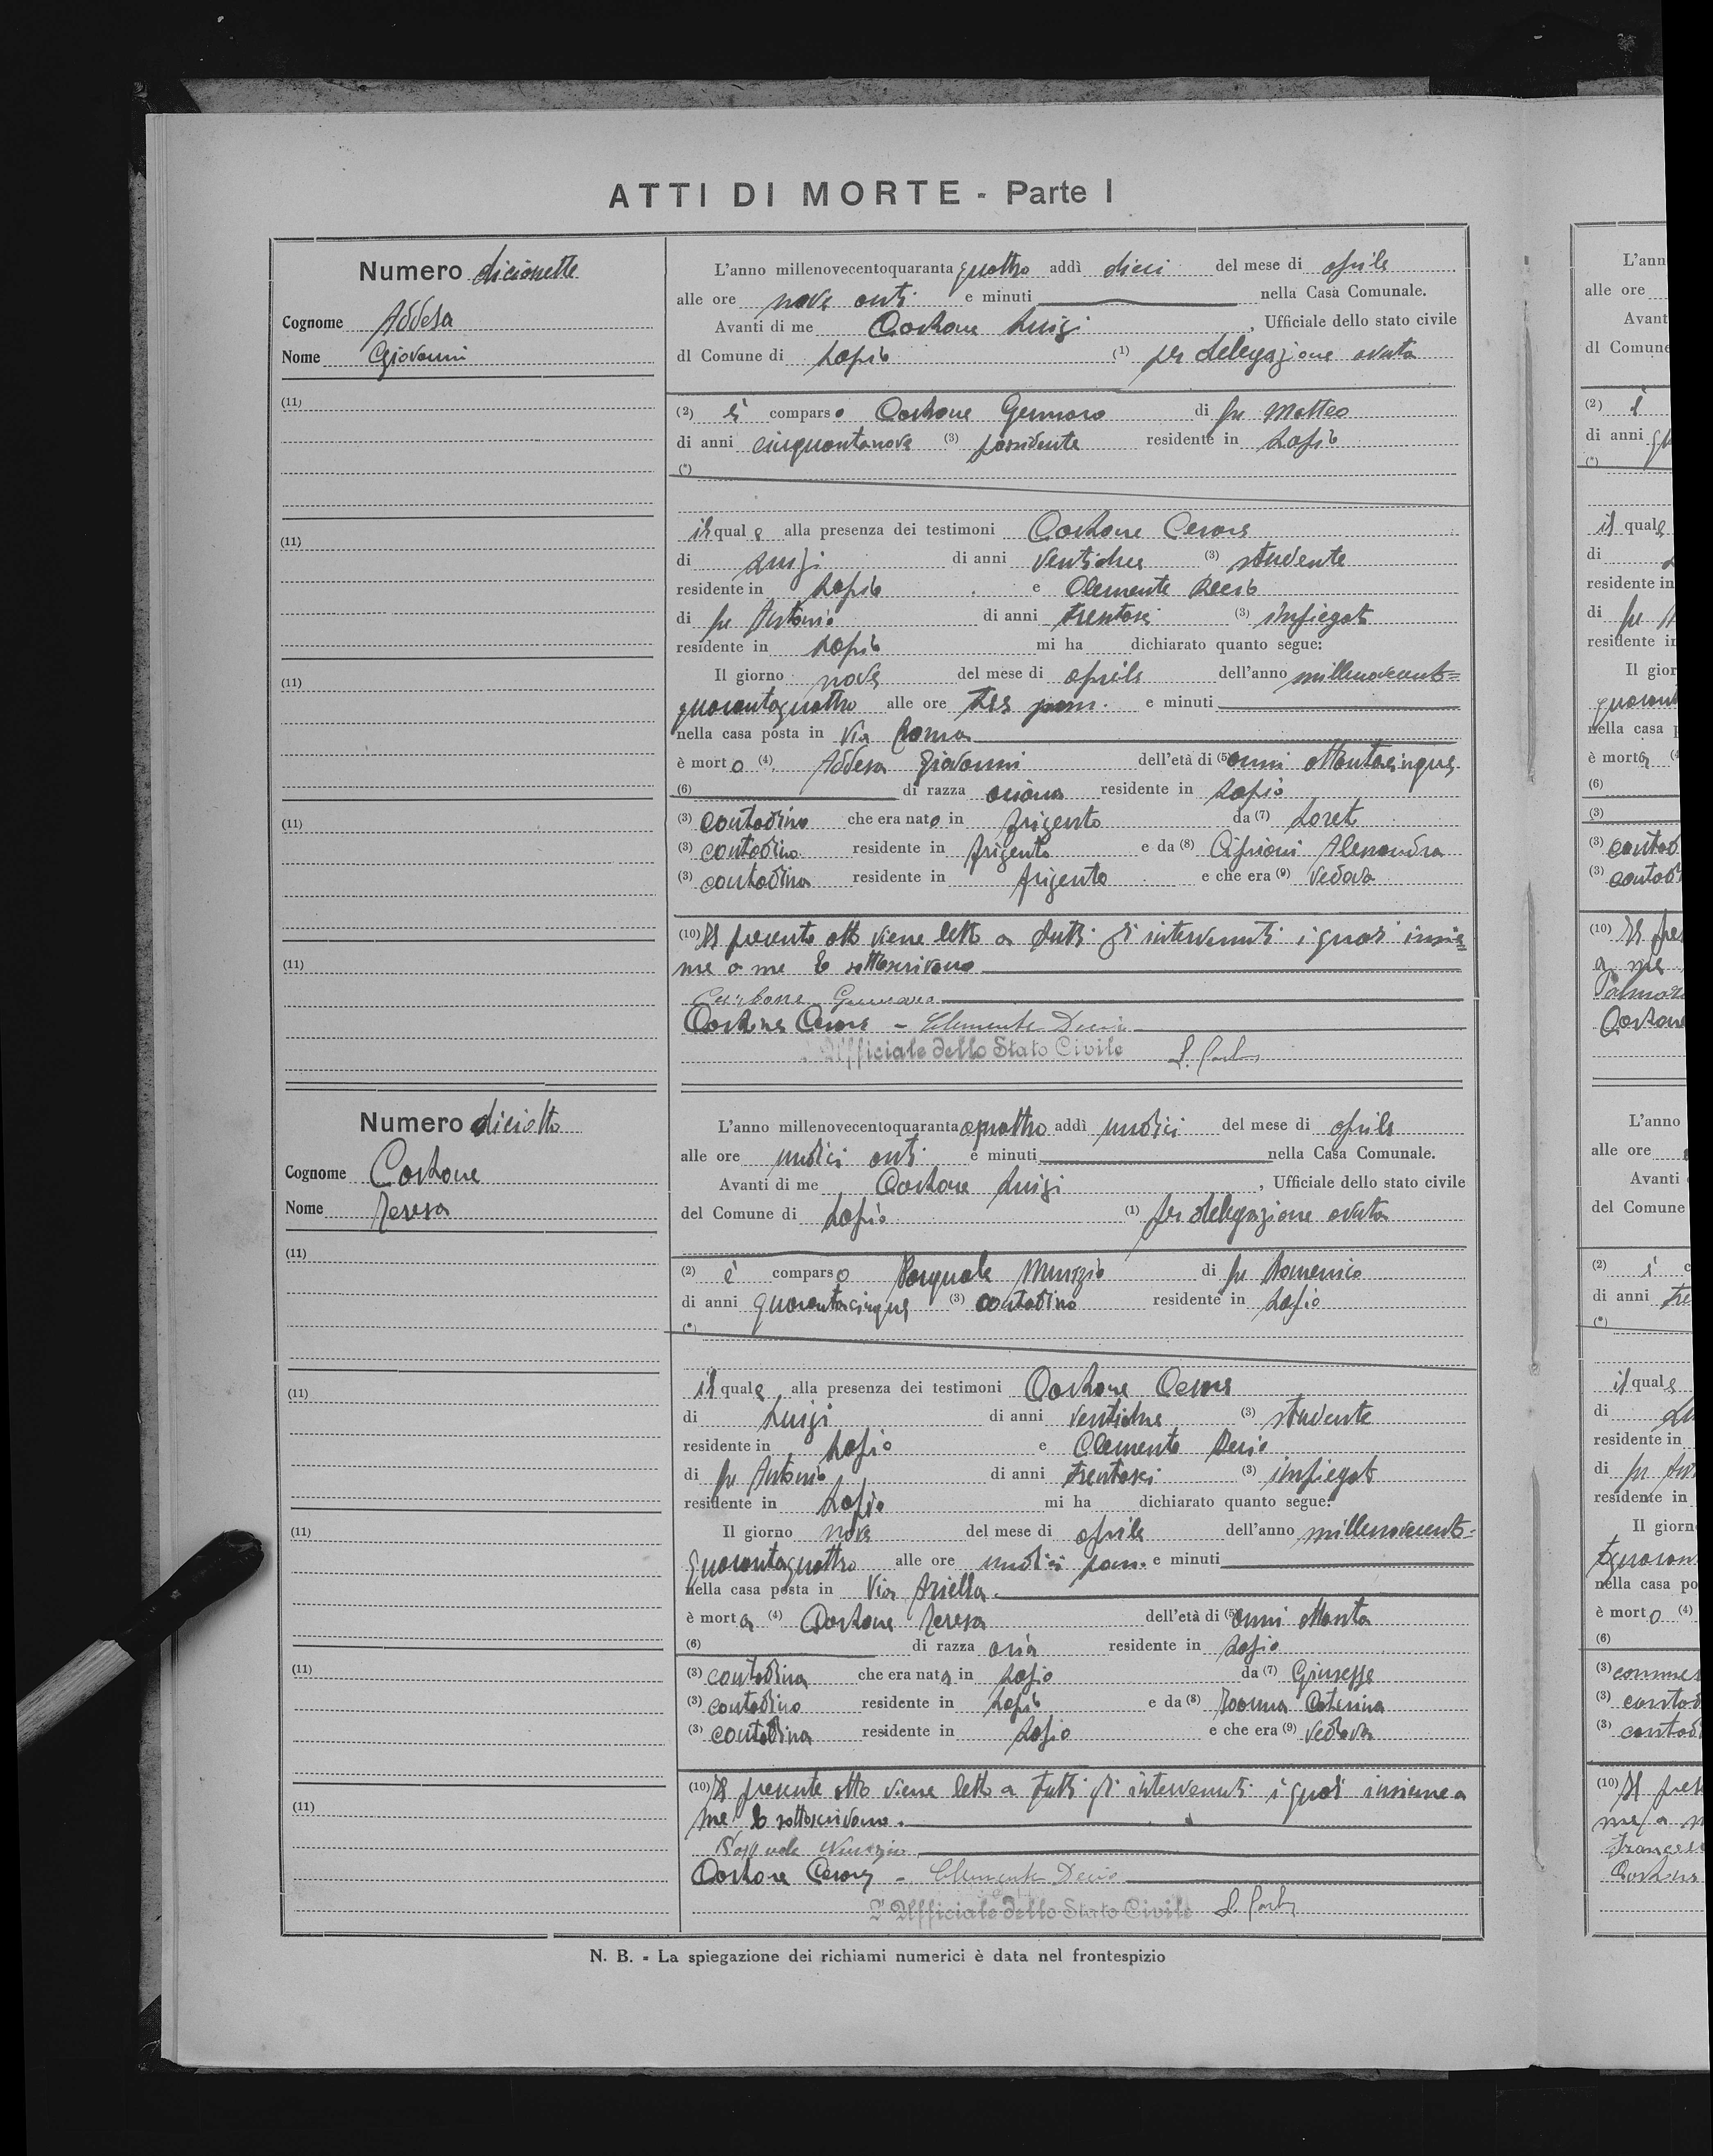 ATTI DI MORTE - Parte I
Numero diciassette
Cognome Addesa
Nome Giovanni
(11)
(11)
(11)
(11)
(11)
L'anno millenovecentoquaranta quattro addì dieci del mese di aprile
alle ore nove anti e minuti nella Casa Comunale.
Avanti di me Carbone Luigi, Ufficiale dello stato civile
dl Comune di Lapio (1) per delegazione avuta
(2) è comparso Carbone Gennaro di fu Matteo
di anni cinquantanove (3) possidente residente in Lapio
(*)
il quale alla presenza dei testimoni Carbone Cesare
di Luigi di anni ventidue (3) studente
residente in Lapio e Clemente Decio
di fu Antonio di anni trentasei (3) impiegato
residente in Lapio mi ha dichiarato quanto segue:
Il giorno nove del mese di aprile dell'anno millenovecento=
quarantaquattro alle ore tre pom. e minuti
nella casa posta in Via Roma
è morto (4) Addesa Giovanni dell'età di (5) anni ottantacinque
(6) di razza ariana residente in Lapio
(3) contadino che era nato in Frigento da (7) Loreto
(3) contadino residente in Frigento e da (8) Cipriani Alessandra
(3) contadina residente in Frigento e che era (9) vedovo
(10) Il presente atto viene letto a tutti gli intervenuti i quali insie=
me a me lo sottoscrivono
Carbone Gennaro
Carbone Cesare - Clemente Decio
L'Ufficiale dello Stato Civile L. Carbone
Numero diciotto
Cognome Carbone
Nome Teresa
(11)
(11)
(11)
(11)
(11)
L'anno millenovecentoquaranta quattro addì undici del mese di aprile
alle ore undici anti e minuti nella Casa Comunale.
Avanti di me Carbone Luigi, Ufficiale dello stato civile
del Comune di Lapio (1) per delegazione avuta
(2) è comparso Pasquale Nunzio di fu Domenico
di anni quarantacinque (3) contadino residente in Lapio
(*)
il quale alla presenza dei testimoni Carbone Cesare
di Luigi di anni ventidue (3) studente
residente in Lapio e Clemente Decio
di fu Antonio di anni trentasei (3) impiegato
residente in Lapio mi ha dichiarato quanto segue:
Il giorno nove del mese di aprile dell'anno millenovecento=
quarantaquattro alle ore undici pom. e minuti
nella casa posta in Via Ariella
è morta (4) Carbone Teresa dell'età di (5) anni ottanta
(6) di razza aria residente in Lapio
(3) contadina che era nata in Lapio da (7) Giuseppe
(3) contadino residente in Lapio e da (8) Caterina
(3) contadina residente in Lapio e che era (9) vedova
(10) Il presente atto viene letto a tutti gli intervenuti i quali insieme a
me lo sottoscrivono.
Pasquale Nunzio
Carbone Cesare - Clemente Decio
L'Ufficiale dello Stato Civile L. Carbone
N. B. - La spiegazione dei richiami numerici è data nel frontespizio